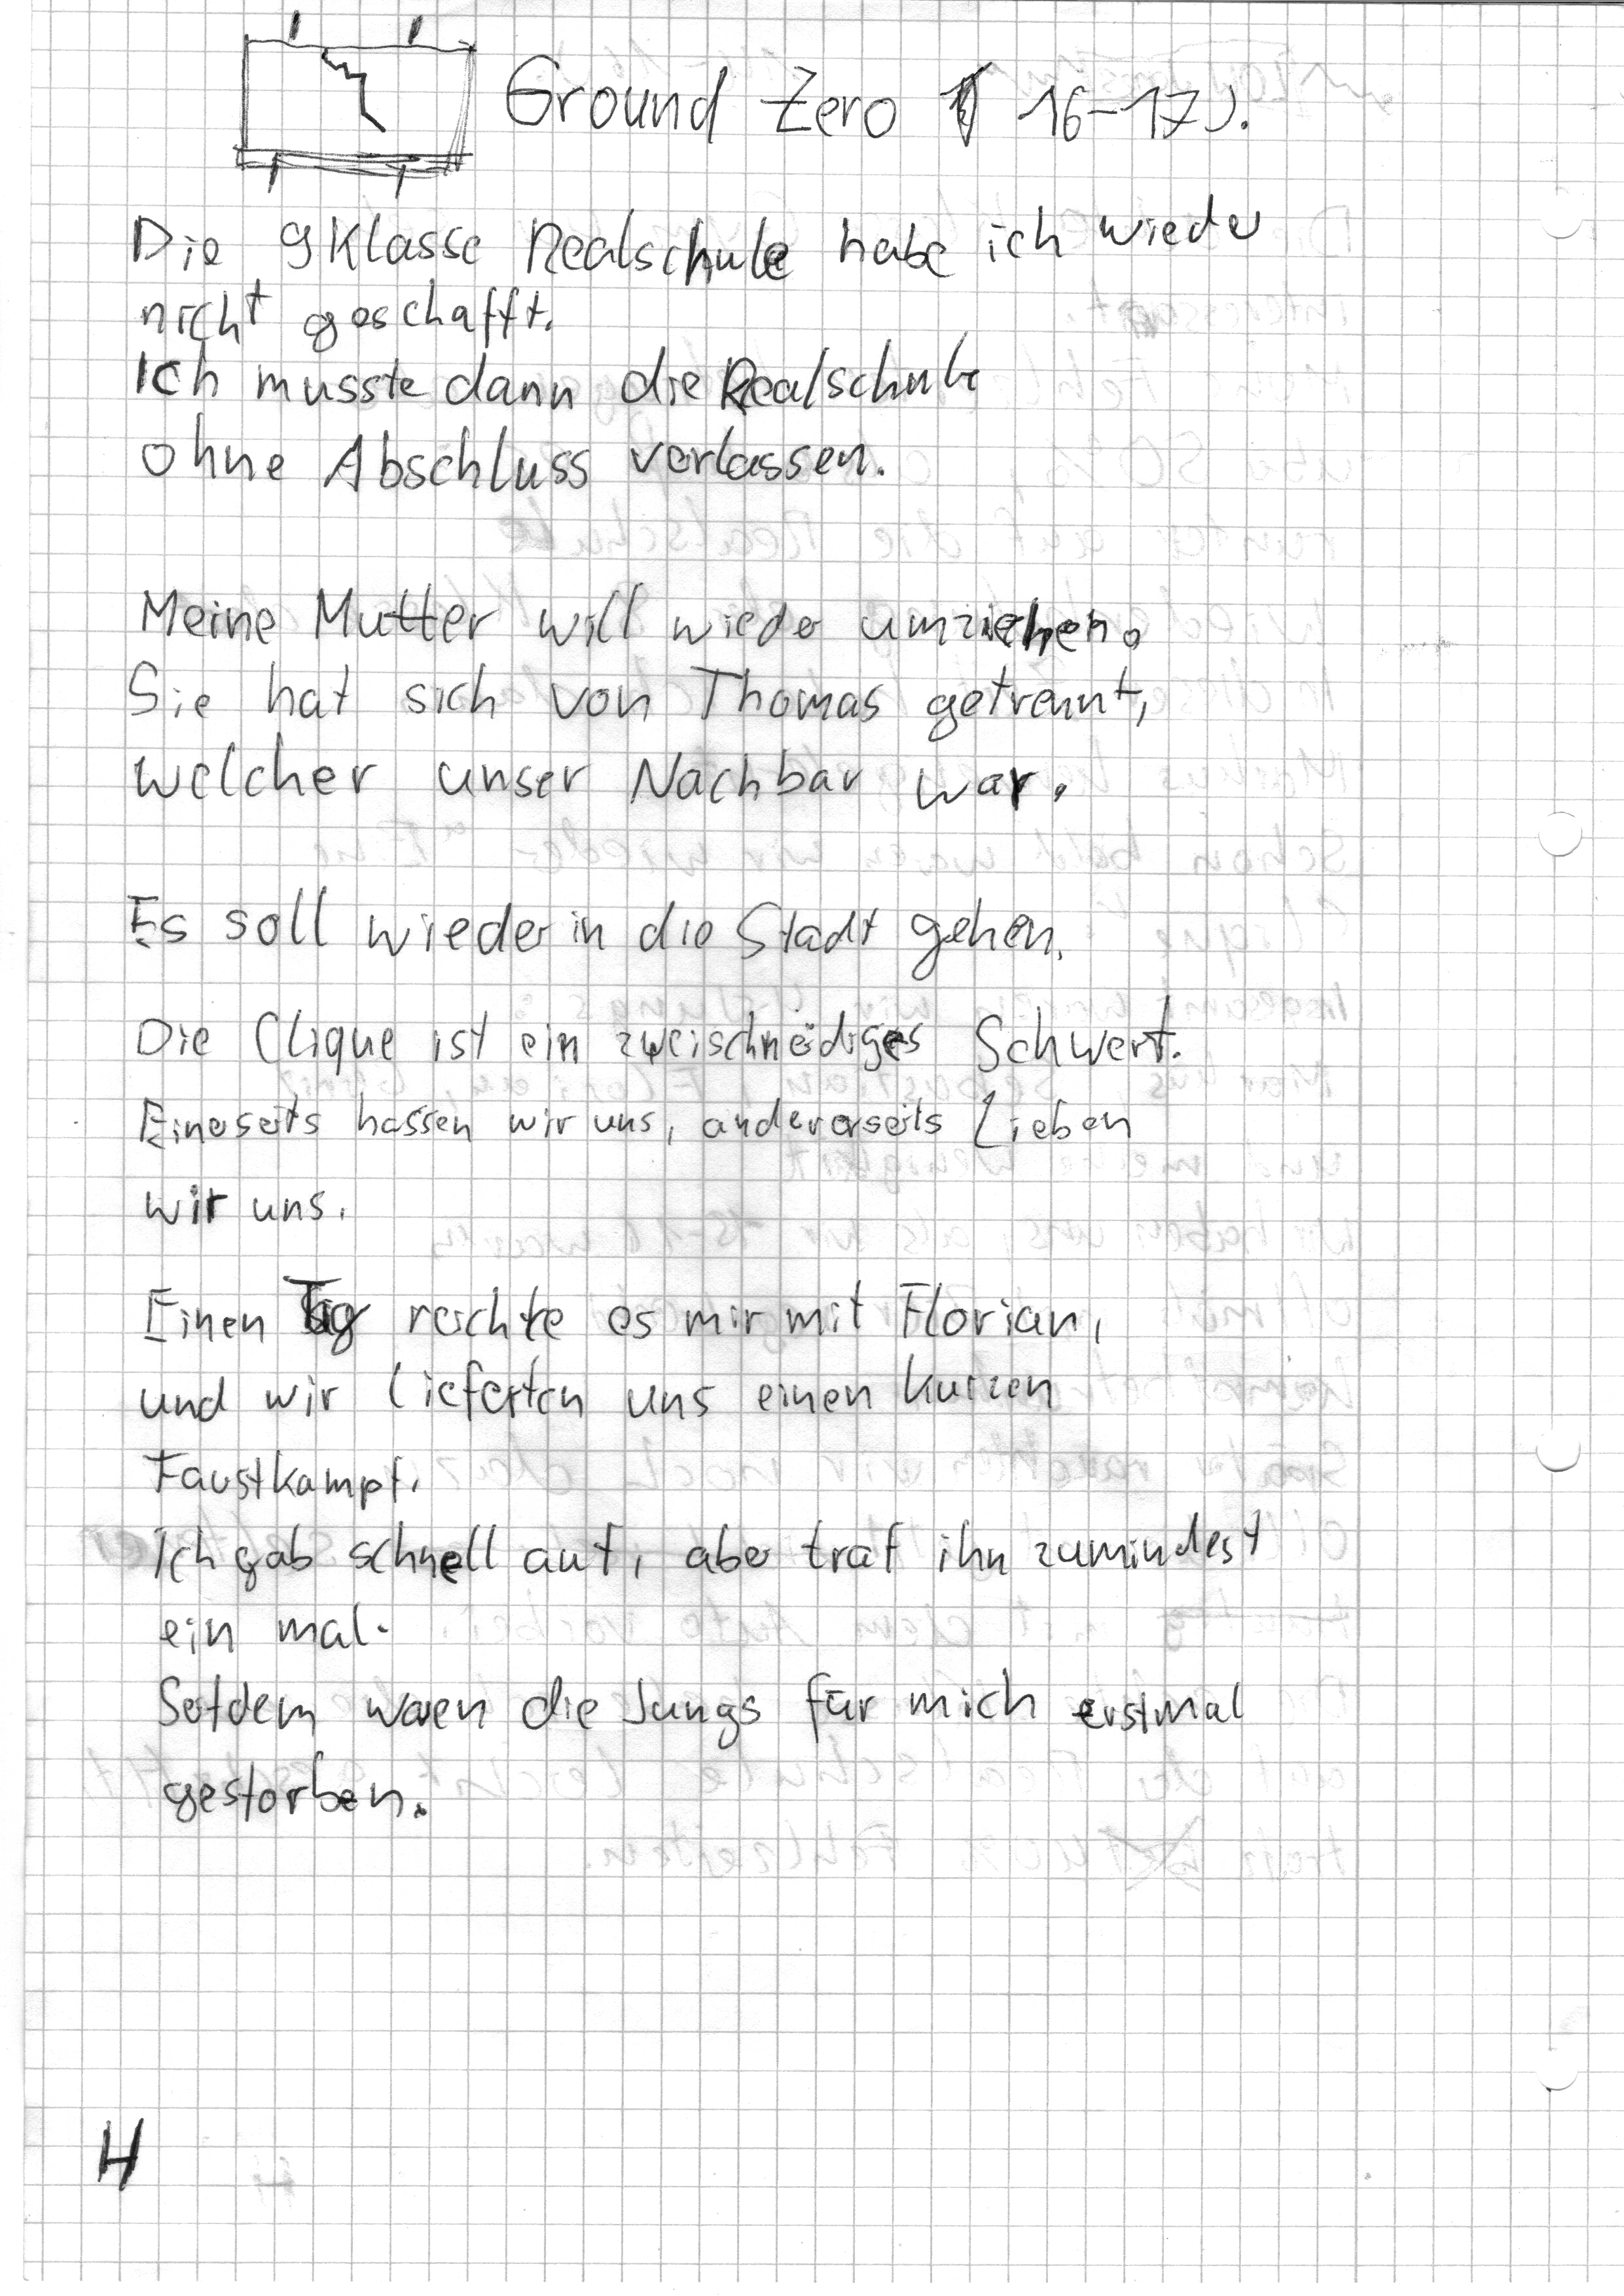 Ground Zero 16-17J.
Die 9 Klasse Realschule habe ich wieder
nicht geschafft.
Ich musste dann die Realschule
ohne Abschluss verlassen.
Meine Mutter will wieder umziehen.
Sie hat sich von Thomas getrennt,
welcher unser Nachbar war.
Es soll wieder in die Stadt gehen.
Die Clique ist ein zweischneidiges Schwert.
Einerseits hassen wir uns, andererseits Lieben
wir uns.
Einen Tag reichte es mir mit Florian,
und wir lieferten uns einen kurzen
Faustkampf.
Ich gab schnell auf, aber traf ihn zumindest
ein mal.
Seitdem waren die Jungs für mich erstmal
gestorben.